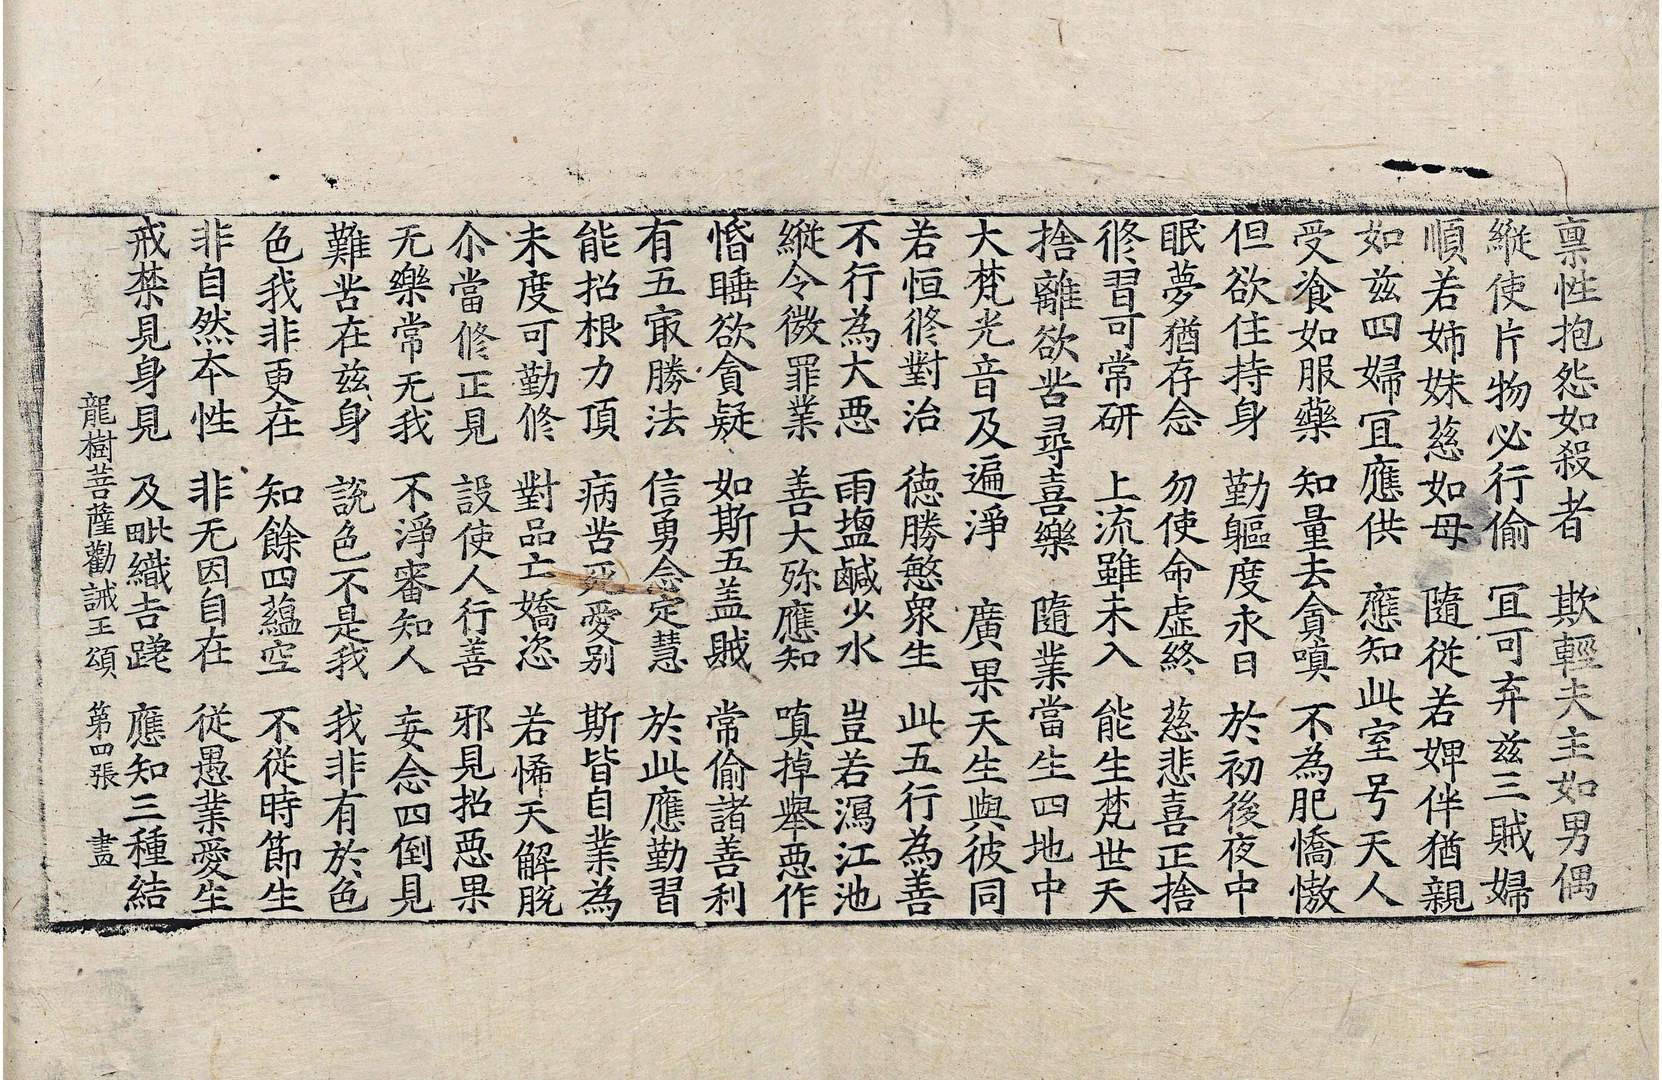 禀性抱怨如殺者　欺輕夫主如男偶
縱使片物必行偷　冝可弃兹三賊婦
順若姉妹慈如母　隨從若婢伴猶親
如兹四婦冝應供　應知此室号天人
受飡如服藥　知量去貪嗔　不為肥憍慠
但欲住持身　勤軀度永日　於初後夜中
眠夢猶存念　勿使命虛終　慈悲喜正捨
修習可常研　上流雖未入　能生梵世天
捨離欲苦尋喜樂　隨業當生四地中
大梵光音及遍淨　廣果天生與彼同
若恒修對治　德勝慜衆生　此五行為善
不行為大惡　雨塩鹹少水　豈若瀉江池
縱令微罪業　善大弥應知　嗔掉舉惡作
惛睡欲貪疑　如斯五盖賊　常偷諸善利
有五㝡勝法　信勇念定慧　於此應勤習
能招根力頂　病苦死愛别　斯皆自業為
未度可勤修　對品亡嬌恣　若悕天解脫
尒當修正見　設使人行善　邪見招惡果
无樂常无我　不淨審知人　妄念四倒見
難苦在兹身　說色不是我　我非有於色
色我非更在　知餘四蘊空　不從時節生
非自然夲性　非无因自在　從愚業愛生
戒禁見身見　及毗織吉蹉　應知三種結
龍樹菩薩勸誡王頌　第四張　畫